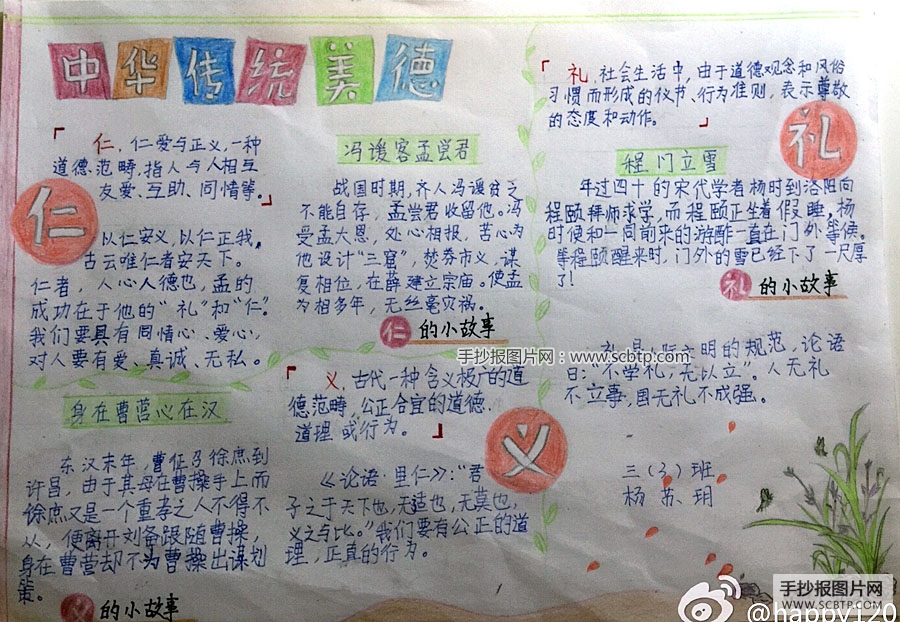 中华传统美德
「仁，仁爱与正义，一种
道德范畴，指人与人相互
友爱、互助、同情等。」
仁
以仁安义，以仁正我，
古云唯仁者安天下。
仁者，人心人德也，孟的
成功在于他的“礼”和“仁”。
我们要具有同情心、爱心，
对人要有爱、真诚、无私。
身在曹营心在汉
东汉末年，曹征召徐庶到
许昌，由于其母在曹操手上而
徐庶又是一个重孝之人不得不
从，便离开刘备跟随曹操，
身在曹营却不为曹操出谋划
策。
的小故事
冯谖客孟尝君
战国时期，齐人冯谖贫乏
不能自存，孟尝君收留他。冯
受孟大恩，处心相报，苦心为
他设计“三窟”，焚券市义，谋
复相位，在薛建立宗庙。使孟
为相多年，无丝毫灾祸。
仁的小故事
「义，古代一种含义极广的道
德范畴，公正合宜的道德、
道理或行为。」
义
《论语·里仁》：“君
子之于天下也，无适也，无莫也，
义之与比。”我们要有公正的道
理，正真的行为。
「礼，社会生活中，由于道德观念和风俗
习惯而形成的仪节、行为准则，表示尊敬
的态度和动作。」
礼
程门立雪
年过四十的宋代学者杨时到洛阳向
程颐拜师求学，而程颐正坐着假睡，杨
时便和一同前来的游酢一直在门外等候。
等程颐醒来时，门外的雪已经下了一尺厚
了！
礼的小故事
手抄报图片网：www.scbtp.com
礼是 际文明的规范，论语
曰：“不学礼，无以立”。人无礼
不立事，国无礼不成强。
三（3）班
杨苏玥
手抄报图片网
WWW.SCBTP.COM
@happy120